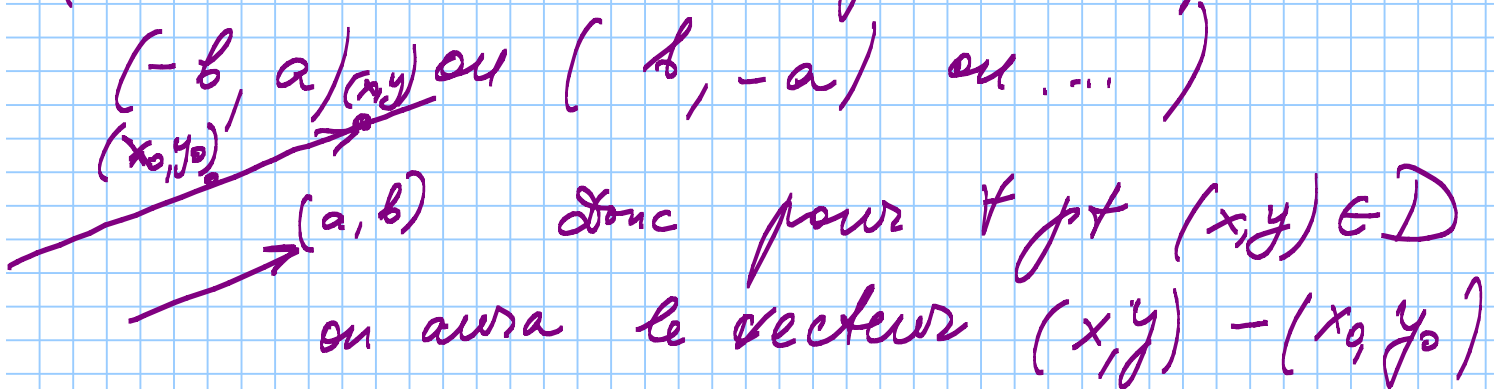 (-b, a) ou (b, -a) ou ... )
(x,y)
(x₀,y₀)
(a,b) donc pour ∀ pt (x,y) ∈ D
on aura le vecteur (x,y) - (x₀,y₀)